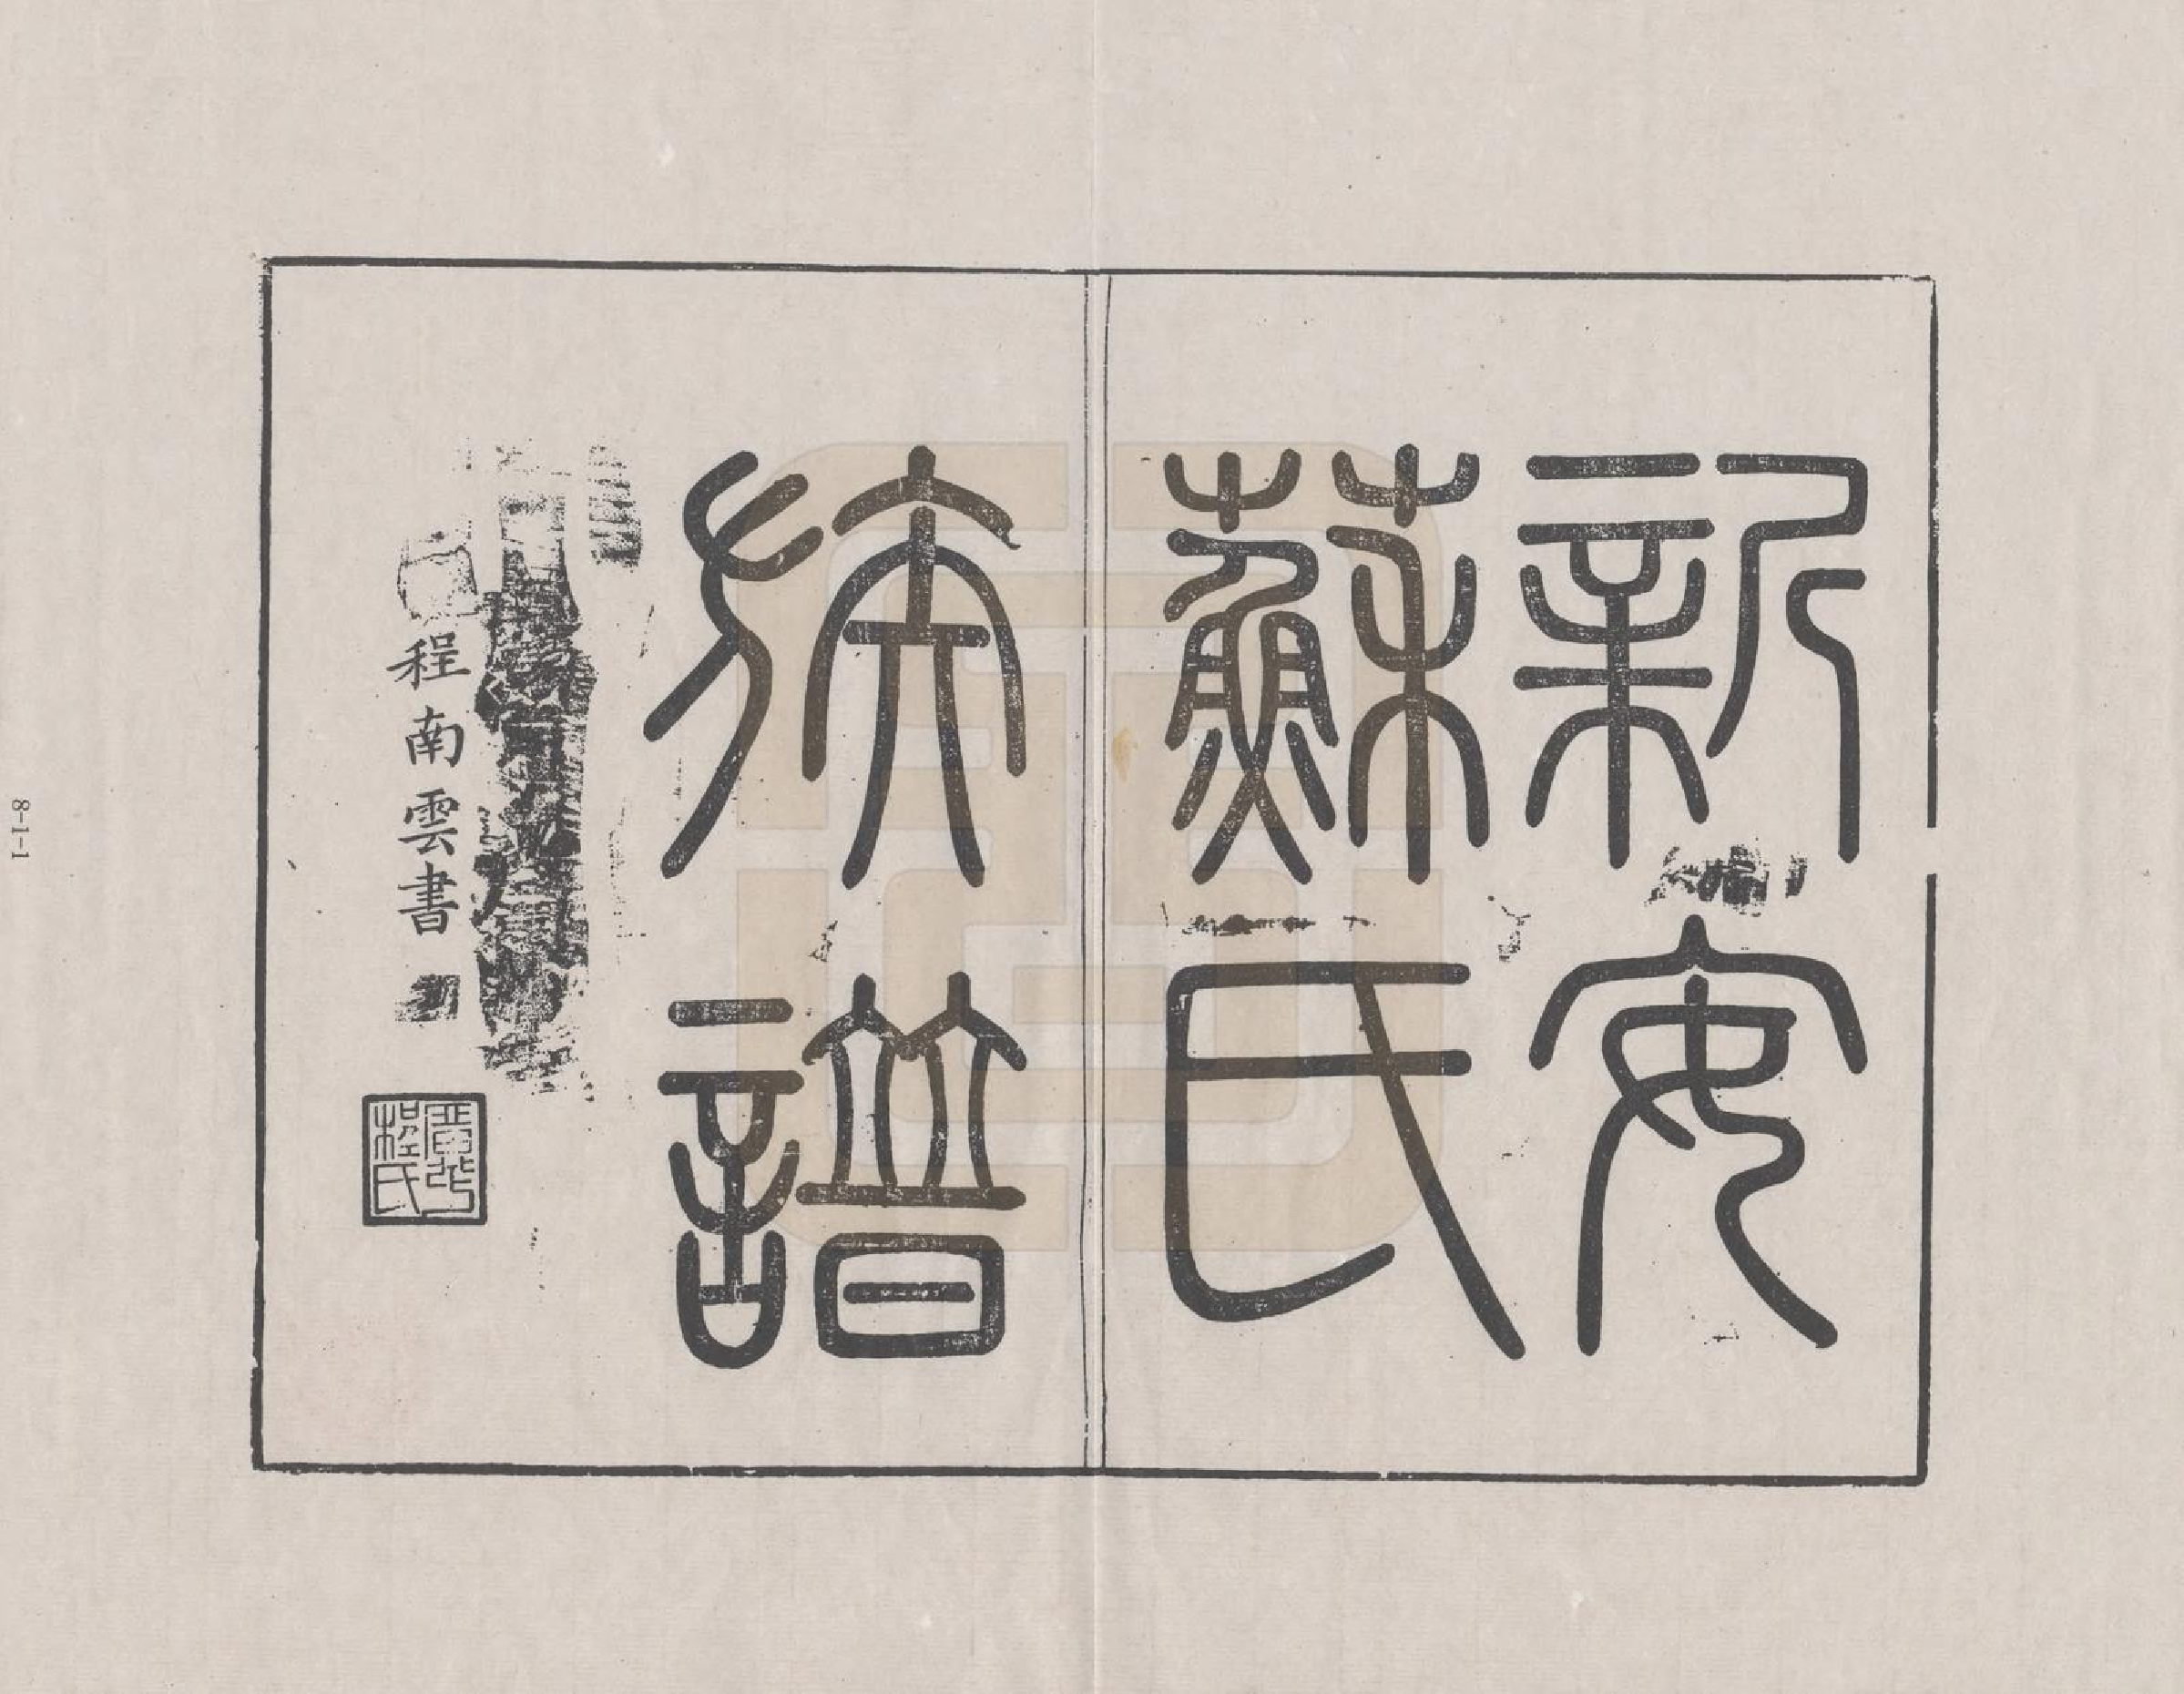 新安
蘇氏
族譜
程南雲書
廣平程氏
8-1-1